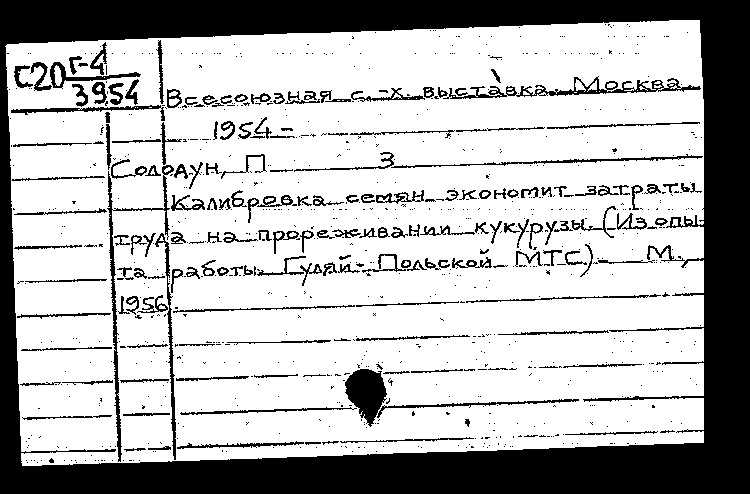 С20 Г-4
3954
Всесоюзная с.-х. выставка. Москва.
1954 -
Солодун, П З
Калибровка семян экономит затраты
труда на прореживании кукурузы. (Из опы-
та работы Гуляй-Польской МТС) - М.,
1956.